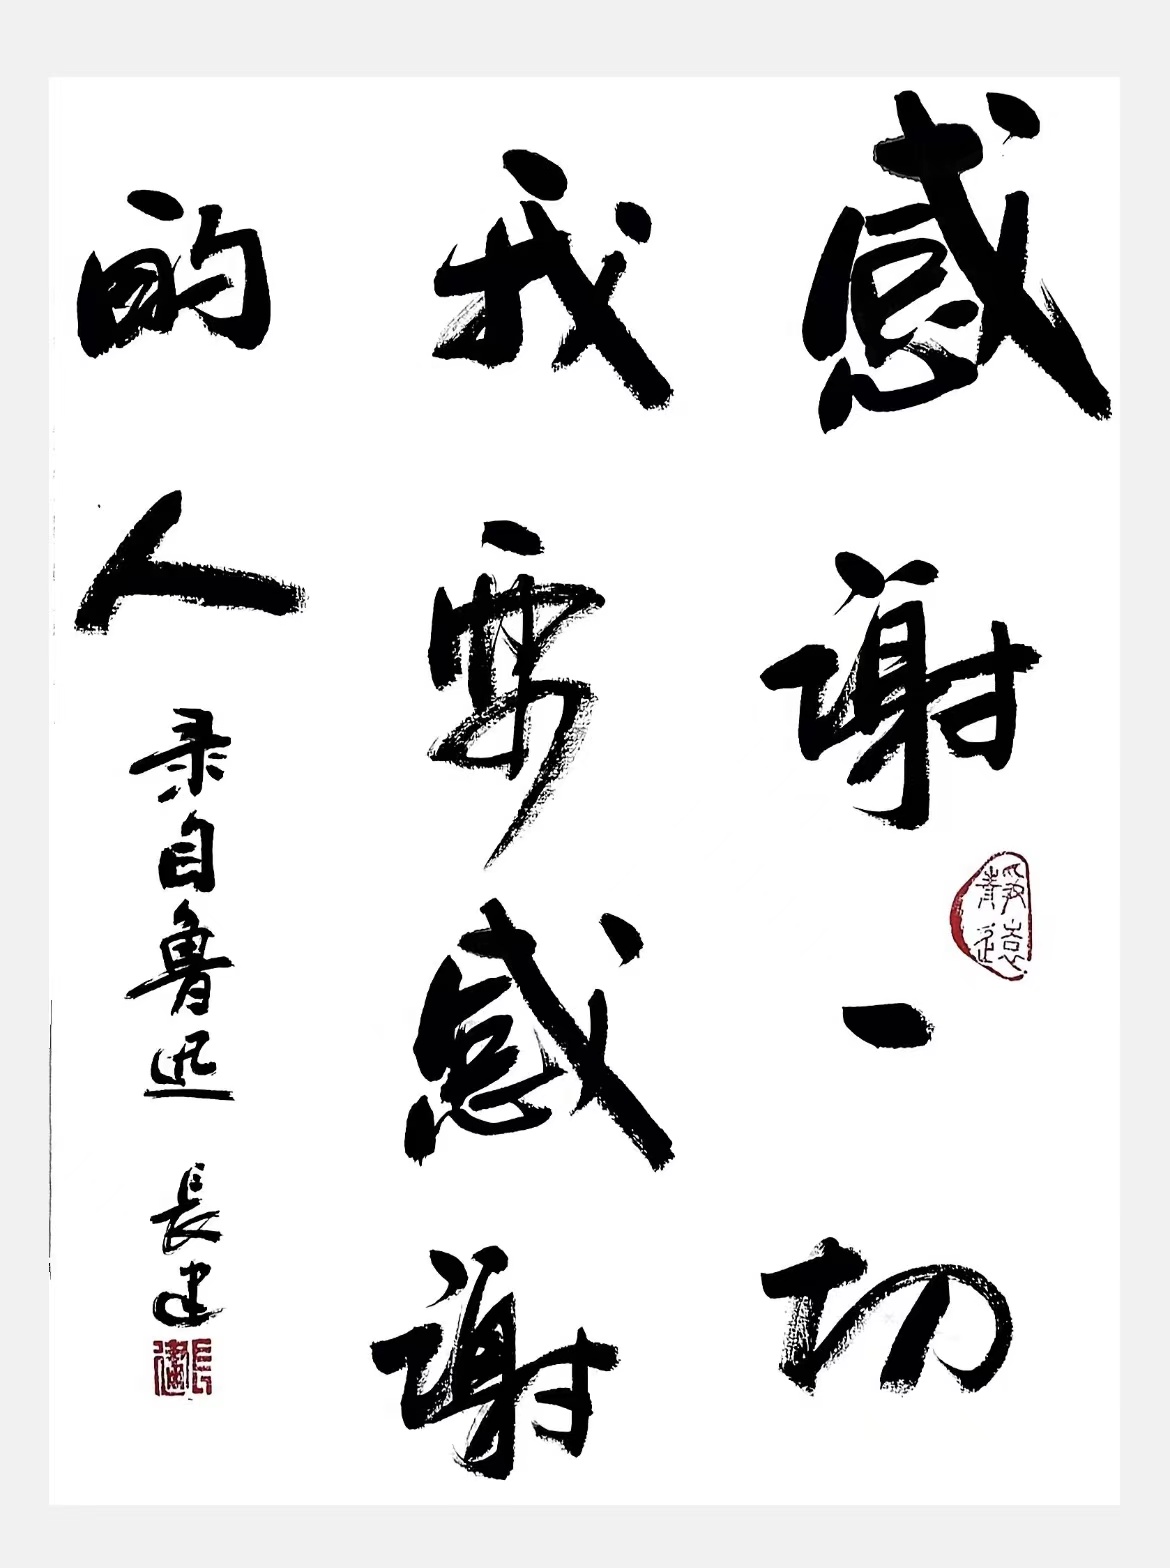 感谢一切
我要感谢
的人
录自鲁迅
長建